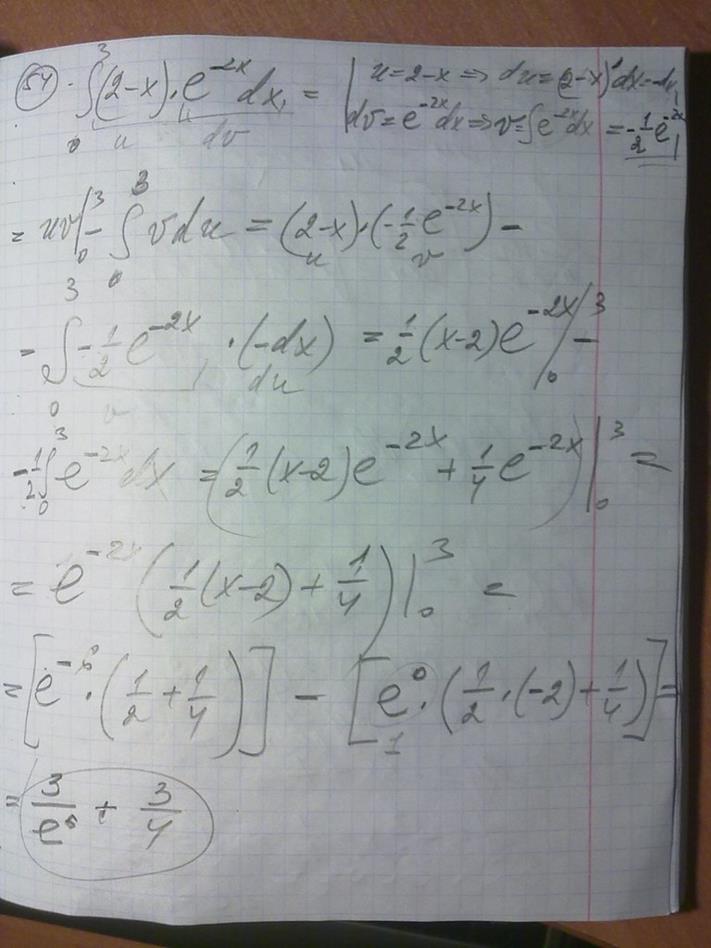 54. ∫₀³ (2-x)·e^(-2x) dx, = | u=2-x => du=(2-x)'dx=-dx,
u u dv | dv=e^(-2x)dx => v=∫e^(-2x)dx = -1/2 e^(-2x) |
= uv|₀³ - ∫₀³ v du = (2-x)·(-1/2 e^(-2x)) -
u v
- ∫₀³ -1/2 e^(-2x) ·(-dx) = 1/2 (x-2) e^(-2x) |₀³ -
v du
-1/2 ∫₀³ e^(-2x) dx = (1/2 (x-2) e^(-2x) + 1/4 e^(-2x)) |₀³ =
= e^(-2x) (1/2 (x-2) + 1/4) |₀³ =
= [e^(-6)·(1/2 + 1/4)] - [e⁰·(1/2·(-2) + 1/4)] =
1
= 3/e⁶ + 3/4